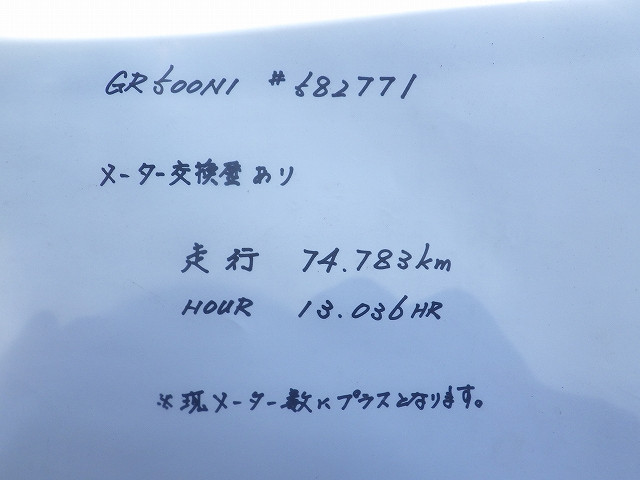 GR500N1 #582771
メーター交換歴あり
走行 74.783km
HOUR 13.036HR
※現メーター数にプラスとなります。